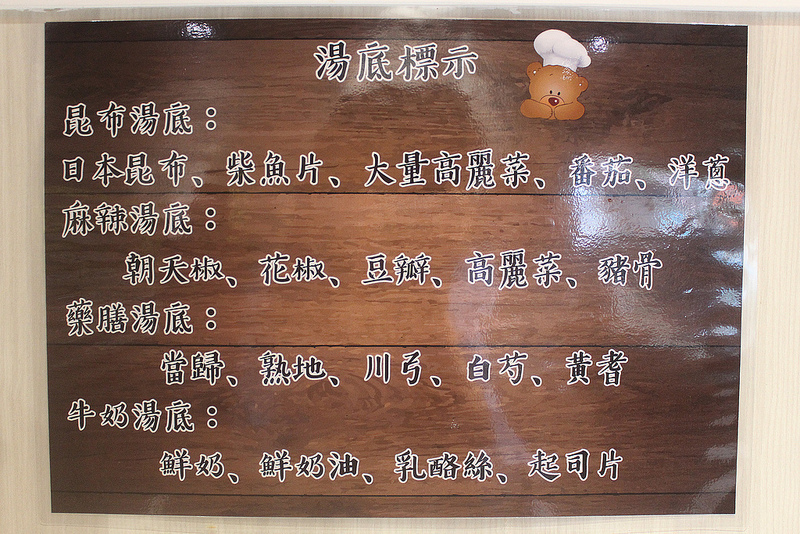 湯底標示
昆布湯底：
日本昆布、柴魚片、大量高麗菜、番茄、洋蔥
麻辣湯底：
朝天椒、花椒、豆瓣、高麗菜、豬骨
藥膳湯底：
當歸、熟地、川弓、白芍、黃耆
牛奶湯底：
鮮奶、鮮奶油、乳酪絲、起司片